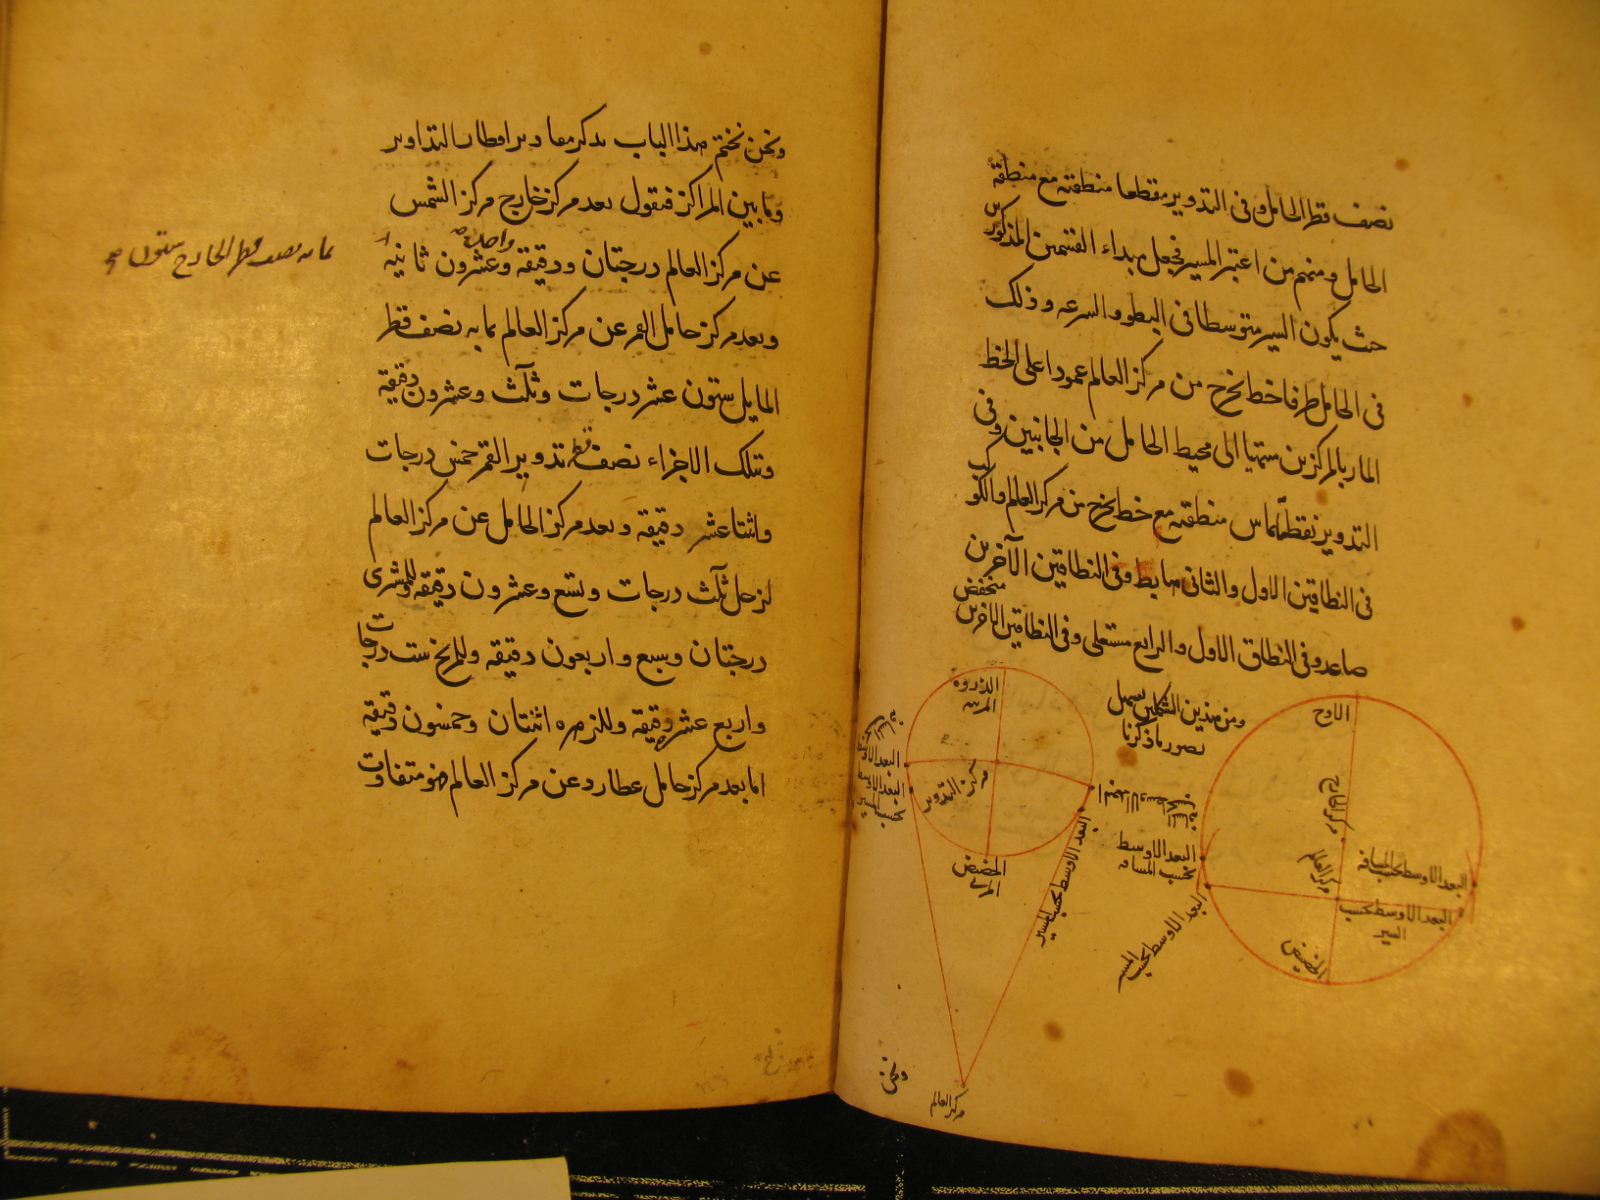 نصف قطر الحامل وفى التدوير مقطعا منطقته مع منطقة
الحامل ومنهم من اعتبر المسير فجعل مبداء القسمين المذكورين
حيث يكون السير متوسطا فى البطو والسرعه وذلك
فى الحامل طرفا خط يخرج من مركز العالم عمودا على الخط
المار بالمركزين منتهيا الى محيط الحامل من الجانبين وفى
التدوير نقطتا تماس منطقته مع خط يخرج من مركز العالم والكوكب
فى النطاقين الاول والثانى هابط وفى النطاقين الآخرين
صاعد وفى النطاق الاول والرابع مستعلى وفى النطاقين الاخرين منخفض
ومن هذين الشكلين يسهل
تصور ما ذكرنا
الاوج
مركز الخارج
مركز العالم
البعد الاوسط بحسب المسافه
البعد الاوسط بحسب
السير
الحضيض
البعد الاوسط
بحسب المسافه
البعد الاوسط بحسب المسير
الذروه
المرئيه
مركز التدوير
الحضيض
المرئى
البعد الاوسط
البعد الاوسط
بحسب المسير
البعد الاوسط بحسب المسير
مركز العالم
ونحن
ونحن نختم هذا الباب بذكر مقادير اقطار التداوير
وما بين المراكز فنقول بعد مركز خارج مركز الشمس
عن مركز العالم درجتان ودقيقة واحدة وعشرون ثانيه
بما به نصف قطر الخارج ستون صح
وبعد مركز حامل القمر عن مركز العالم بما به نصف قطر
المايل ستون عشر درجات وثلث وعشرون دقيقة
وبتلك الاجزاء نصف قطر تدوير القمر خمس درجات
واثنتا عشر دقيقة وبعد مركز الحامل عن مركز العالم
لزحل ثلث درجات وتسع وعشرون دقيقه وللمشترى
درجتان وسبع واربعون دقيقه وللمريخ ست درجات
واربع عشره دقيقه وللزهره اثنتان وخمسون دقيقة
اما بعد مركز حامل عطارد عن مركز العالم فهو متفاوت